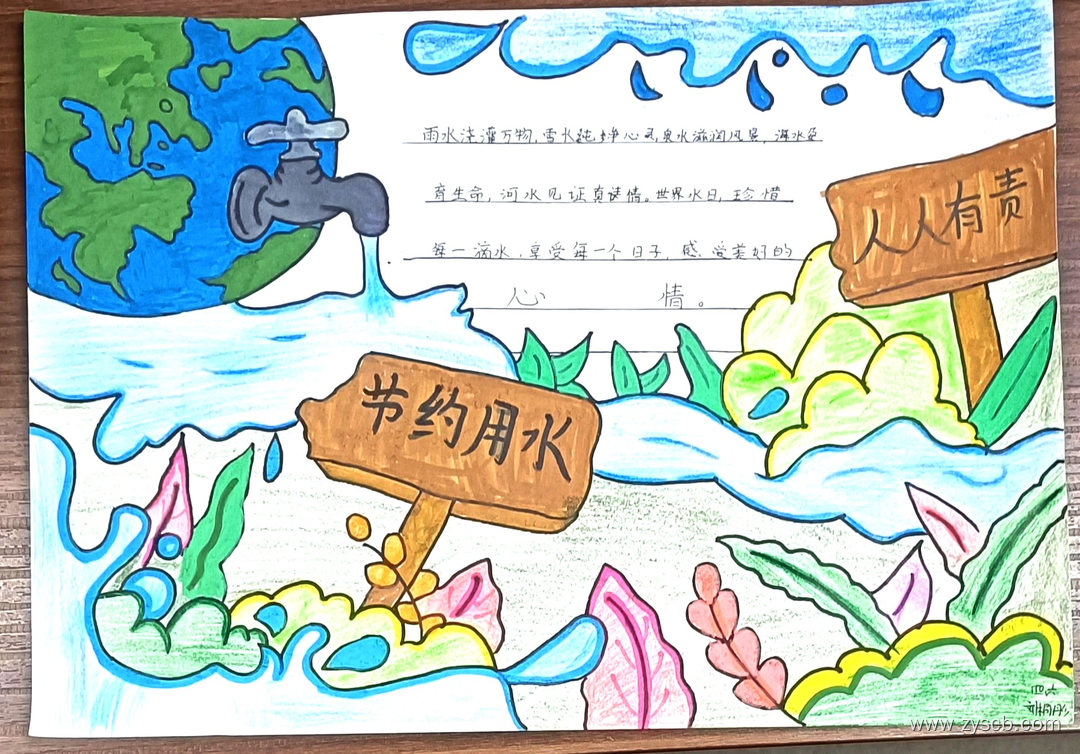 雨水浇灌万物,雪水纯净心灵,泉水滋润风景,海水孕
育生命,河水见证真诚情。世界水日,珍惜
每一滴水,享受每一个日子,感受美好的
心情。
人人有责
节约用水
四六
www.zyseb.com